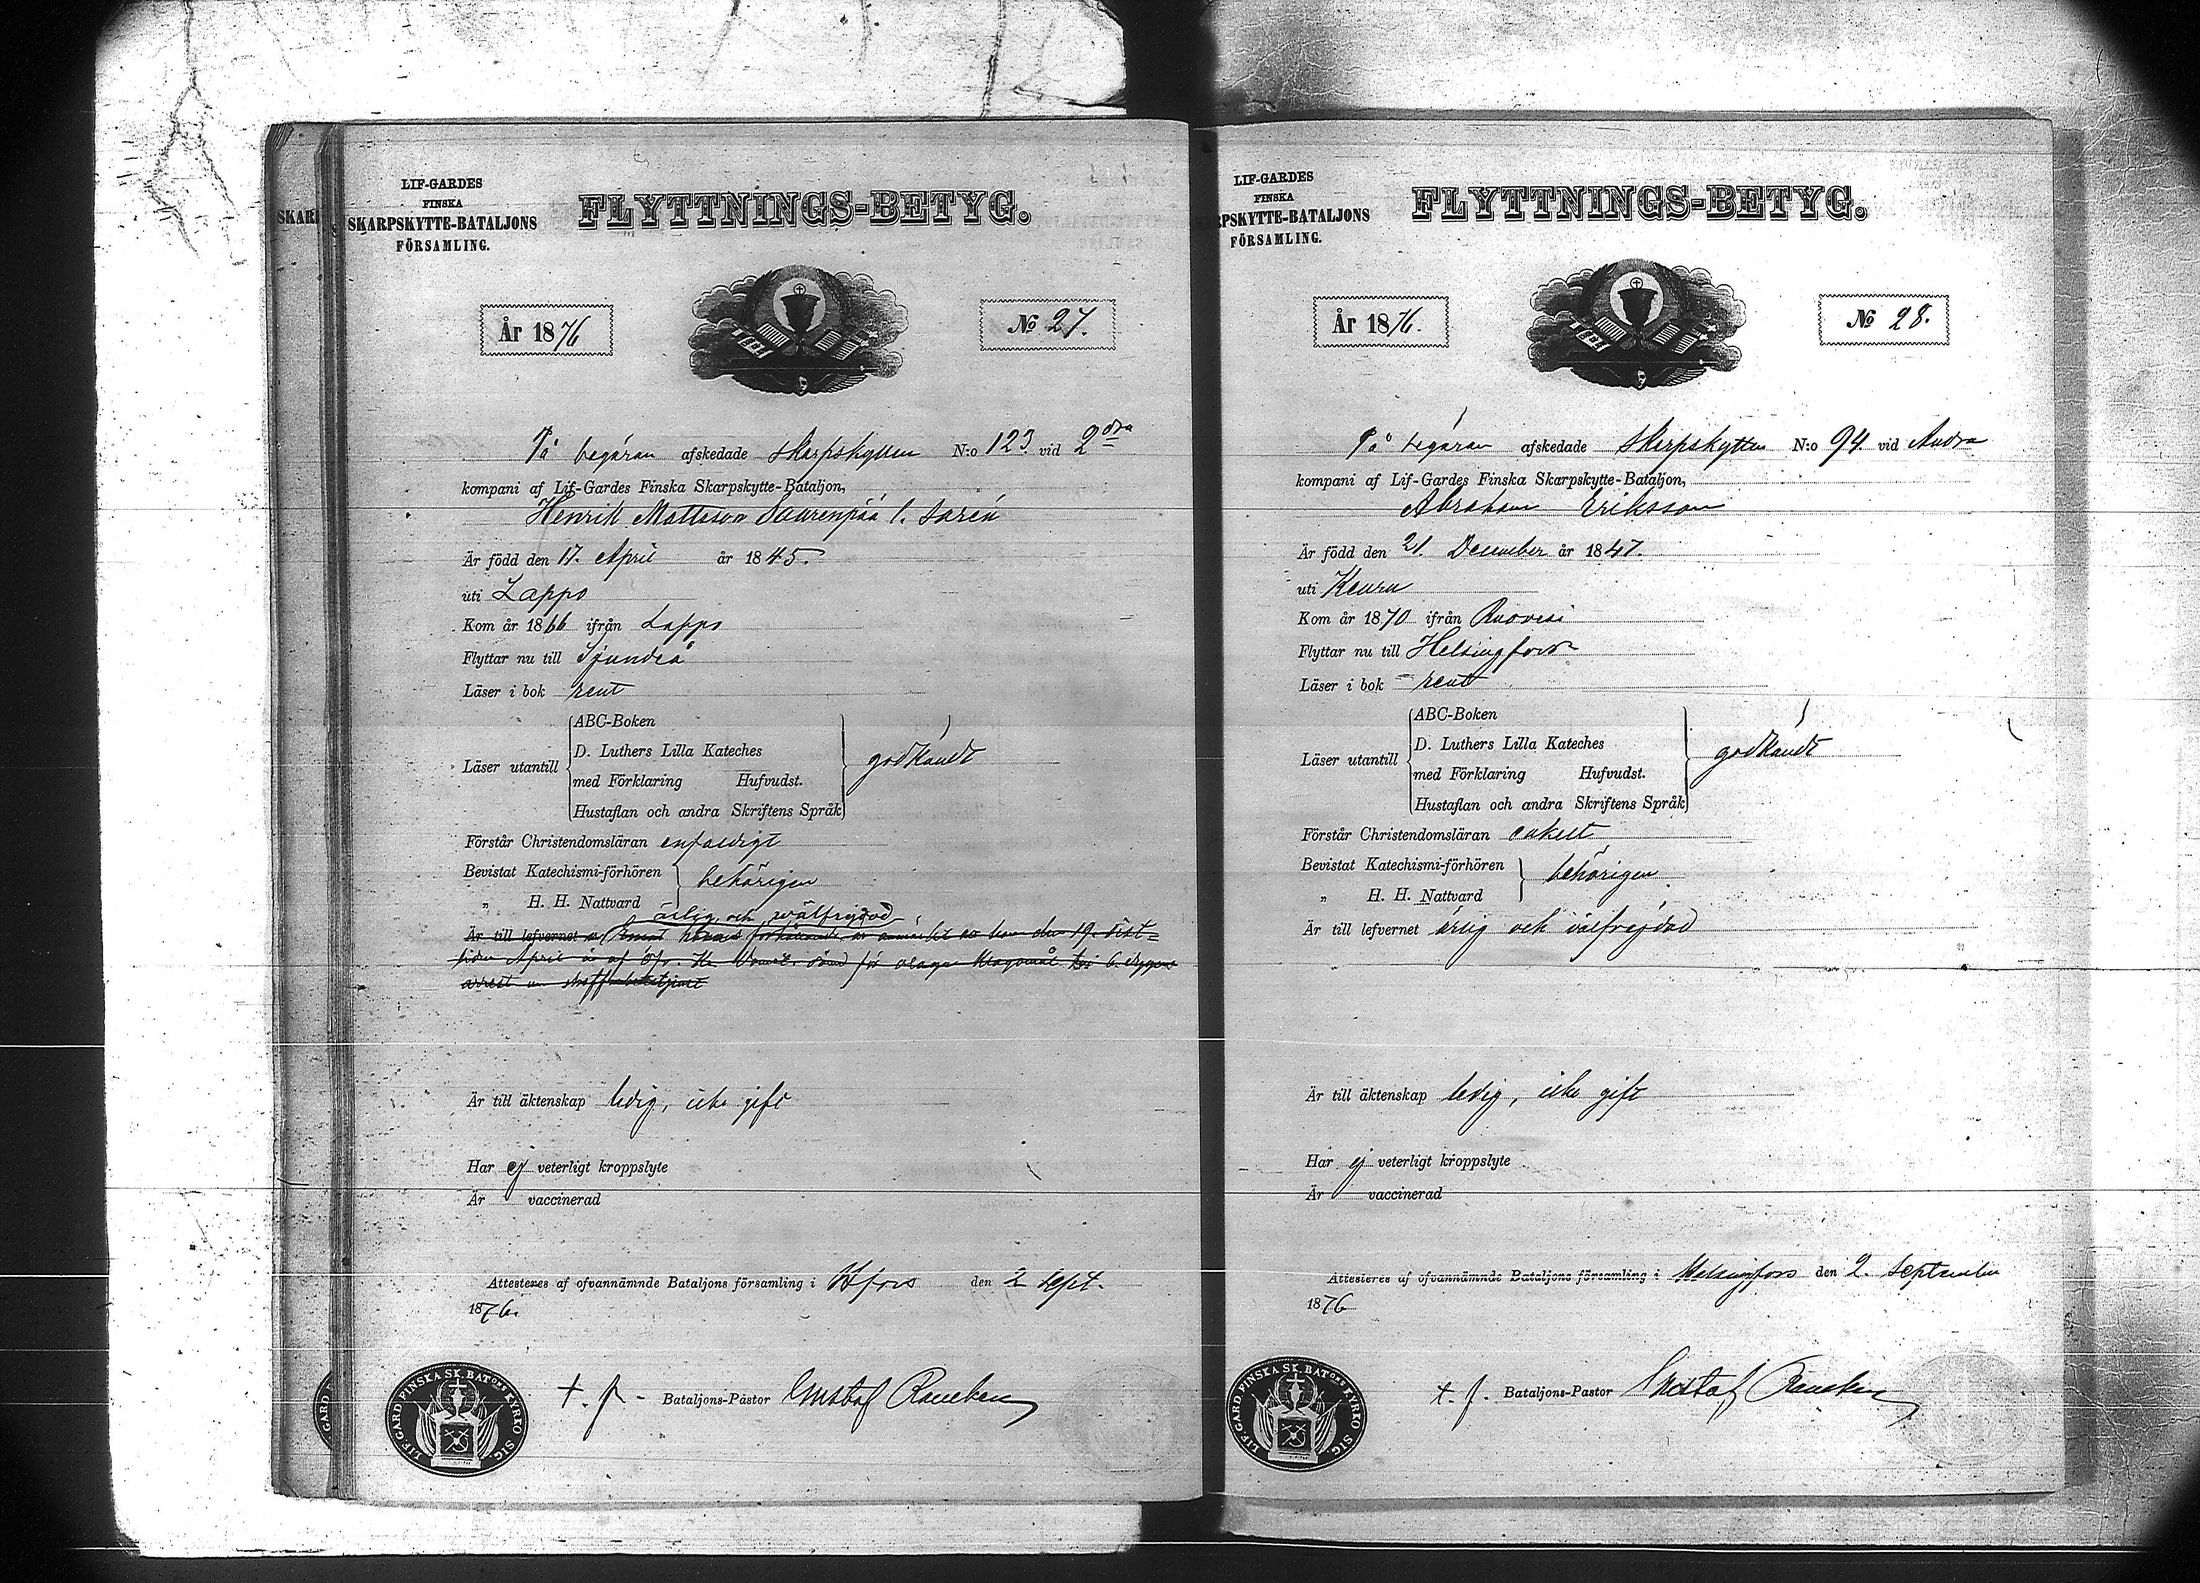 LIF-GARDES
FINSKA
SKARPSKYTTE-BATALJONS
FÖRSAMLING.
FLYTTNINGS-BETYG.
År 1876
No 27.
På begäran afskedade Skarpskytten N:o 123 vid 2dra
kompani af Lif-Gardes Finska Skarpskytte-Bataljon,
Henrik Mattsson Saurenpää l. Sarén
Är född den 17. April år 1845.
uti Lappo
Kom år 1866 ifrån Lappo
Flyttar nu till Sjundeå
Läser i bok rent
Läser utantill
ABC-Boken
D. Luthers Lilla Kateches
med Förklaring Hufvudst.
Hustaflan och andra Skriftens Språk
godkändt
Förstår Christendomsläran enfaldigt
Bevistat Katechismi-förhören
„ H. H. Nattvard
behörigen
ärlig och wälfrejdad
Är till lefvernet
April
arrest
Är till äktenskap ledig, icke gift
Har ej veterligt kroppslyte
Är vaccinerad
Attesteres af ofvannämnde Bataljons församling i Hfors den 2 Sept.
1876.
LIF.GARD.FINSKA SK.BATONS KYRKO SIG.
t. f. Bataljons-Pastor Gustaf Rancken
LIF-GARDES
FINSKA
RPSKYTTE-BATALJONS
FÖRSAMLING.
FLYTTNINGS-BETYG.
År 1876.
No 28.
På begäran afskedade Skarpskytten N:o 94 vid Andra
kompani af Lif-Gardes Finska Skarpskytte-Bataljon,
Abraham Eriksson
Är född den 21. December år 1847.
uti Keuru
Kom år 1870 ifrån Ruovesi
Flyttar nu till Helsingfors
Läser i bok rent
Läser utantill
ABC-Boken
D. Luthers Lilla Kateches
med Förklaring Hufvudst.
Hustaflan och andra Skriftens Språk
godkändt
Förstår Christendomsläran enkelt
Bevistat Katechismi-förhören
„ H. H. Nattvard
behörigen
Är till lefvernet ärlig och välfrejdad
Är till äktenskap ledig, icke gift
Har ej veterligt kroppslyte
Är vaccinerad
Attesteres af ofvannämnde Bataljons församling i Helsingfors den 2. September
1876
LIF.GARD FINSKA SK.BATONS KYRKO SIG.
t. f. Bataljons-Pastor Gustaf Rancken